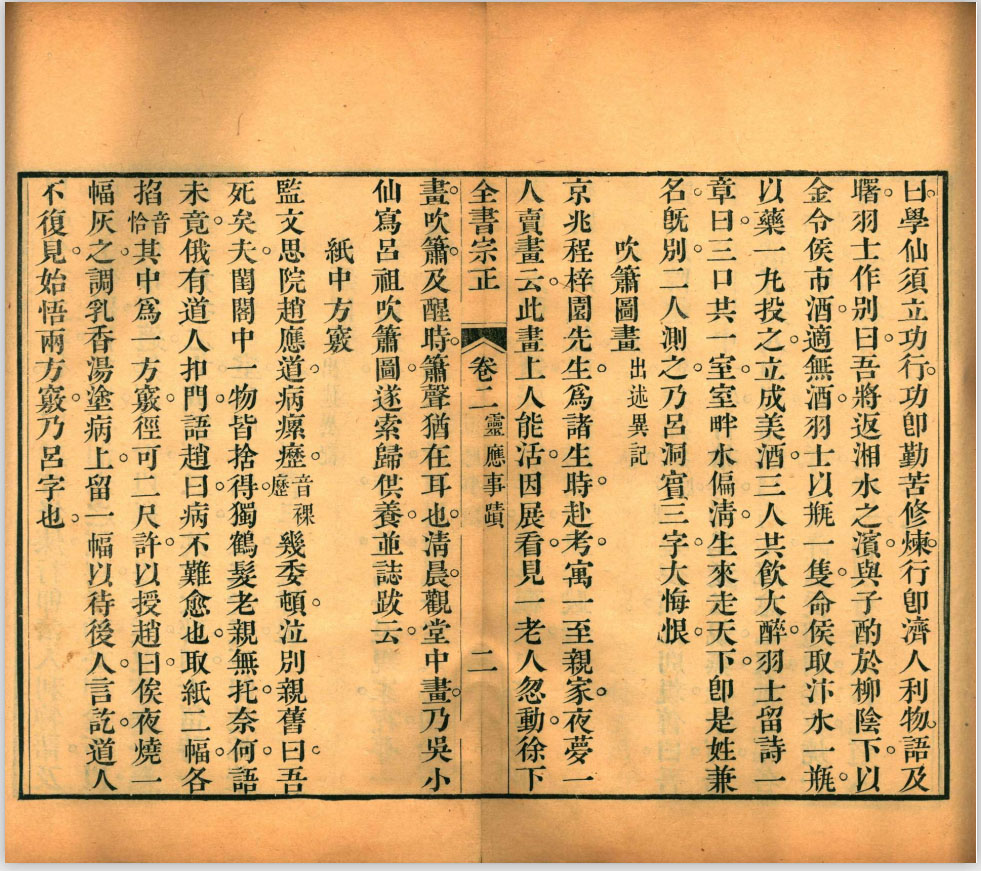 曰學仙須立功行功卽勤苦修煉行卽濟人利物語及
曙羽士作別曰吾將返湘水之濱與子酌於柳陰下以
金令侯市酒適無酒羽士以甁一隻命侯取汴水一甁
以藥一丸投之立成美酒三人共飮大醉羽士留詩一
章曰三口共一室室畔水偏淸生來走天下卽是姓兼
名旣別二人測之乃呂洞賓三字大悔恨
吹簫圖畫 出述異記
京兆程梓園先生爲諸生時赴考寓一至親家夜夢一
人賣畫云此畫上人能活因展看見一老人忽動徐下
全書宗正 卷二 靈應事蹟 二
畫吹簫及醒時簫聲猶在耳也淸晨觀堂中畫乃吳小
仙寫呂祖吹簫圖遂索歸供養並誌跋云
紙中方竅
監文思院趙應道病瘰癧音裸歷幾委頓泣別親舊曰吾
死矣夫閨閤中一物皆捨得獨鶴髮老親無托奈何語
未竟俄有道人扣門語趙曰病不難愈也取紙二幅各
掐音恰其中爲一方竅徑可二尺許以授趙曰俟夜燒一
幅灰之調乳香湯塗病上留一幅以待後人言訖道人
不復見始悟兩方竅乃呂字也